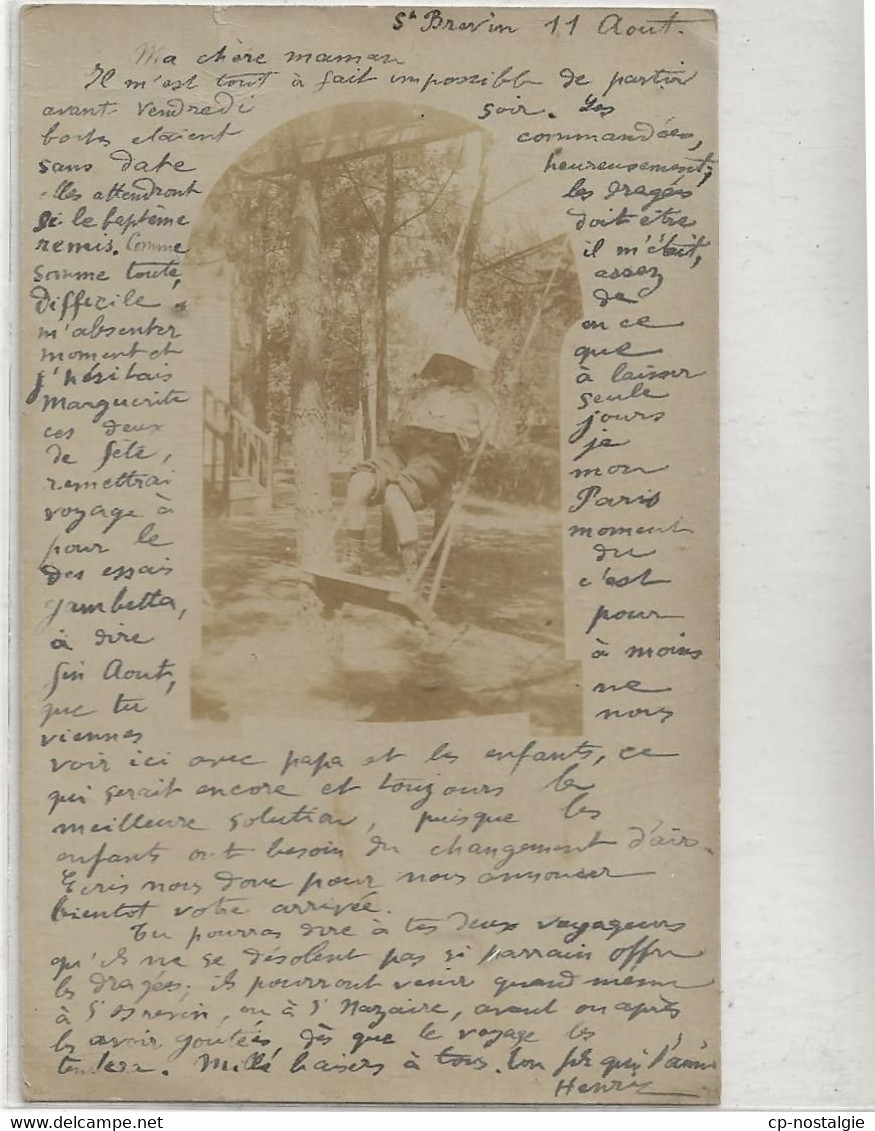 St Brevin 11 Aout.
Ma chère maman
Il m'est tout à fait impossible de partir
avant vendredi soir. Les
boites etaient commandées,
sans date heureusement,
elles attendront les dragées
si le baptême doit être
remis. Comme il m'était,
somme toute, assez
difficile de
m'absenter en ce
moment et que
j'hésitais à laisser
Marguerite seule
ces deux jours
de fête, je
remettrai mon
voyage à Paris
pour le moment
des essais du
gambetta, c'est
à dire pour
fin Aout, à moins
que tu ne
viennes nous
voir ici avec papa et les enfants, ce
qui serait encore et toujours la
meilleure solution, puisque les
enfants ont besoin du changement d'air.
Ecris nous donc pour nous annoncer
bientot votre arrivée.
Tu pourras dire à tes deux voyageurs
qu'ils ne se désolent pas si parrain offre
les dragées; ils pourront venir quand même
à St Brevin, ou à St Nazaire, avant ou après
les avoir goutées, dès que le voyage les
tentera. Mille baisers à tous. Ton fils qui t'aime
Henry
cp-nostalgie